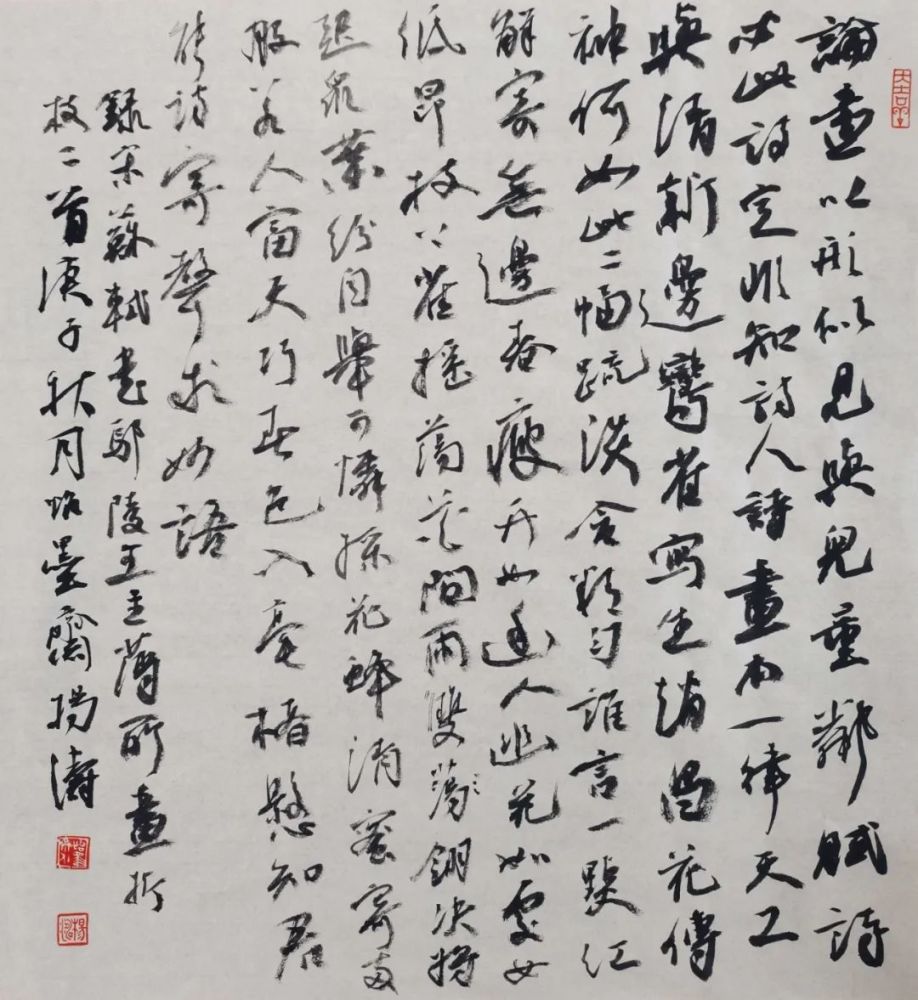 論畫以形似見與兒童鄰賦詩
必此詩定非知詩人詩畫本一律天工
與清新邊鸞雀寫生趙昌花傳
神何如此二幅疏淡含精勻誰言一點紅
解寄無邊春瘦竹如幽人幽花如處女
低昂枝上雀搖蕩花間雨雙蕩翎決將
起衆葉紛自舉可憐採花蜂清蜜寄兩
股若人富天巧春色入毫楮懸知君
能詩寄聲求妙語
錄宋蘇軾書鄢陵王主薄所畫折
枝二首庚子秋月墨齋楊濤
大吉羊